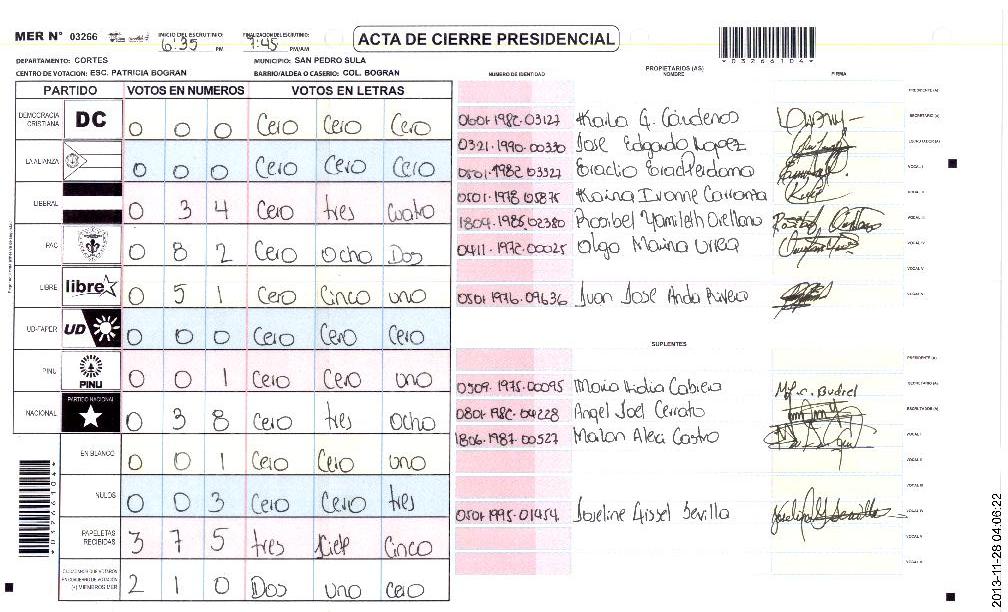 MER N° 03266
INICIO DEL ESCRUTINIO: 6:35 PM
FINALIZACION DEL ESCRUTINIO: 7:45 PM/AM
ACTA DE CIERRE PRESIDENCIAL
* 0 3 2 6 6 1 0 4 *
DEPARTAMENTO: CORTES
MUNICIPIO: SAN PEDRO SULA
CENTRO DE VOTACION: ESC. PATRICIA BOGRAN
BARRIO/ALDEA O CASERIO: COL. BOGRAN
PARTIDO VOTOS EN NUMEROS VOTOS EN LETRAS
DEMOCRACIA CRISTIANA DC 0 0 0 Cero Cero Cero
LA ALIANZA 0 0 0 Cero Cero Cero
LIBERAL 0 3 4 Cero tres Cuatro
PAC 0 8 2 Cero Ocho Dos
LIBRE libre 0 5 1 Cero Cinco uno
UD-FAPER UD 0 0 0 Cero Cero Cero
PINU PINU 0 0 1 Cero Cero uno
NACIONAL PARTIDO NACIONAL 0 3 8 Cero tres Ocho
EN BLANCO 0 0 1 Cero Cero uno
NULOS 0 0 3 Cero Cero tres
PAPELETAS RECIBIDAS 3 7 5 tres siete Cinco
CIUDADANOS QUE VOTARON EN CUADERNO DE VOTACIÓN (+) MIEMBROS MER 2 1 0 Dos uno cero
* 0 3 2 6 6 1 0 4 *
PROPIETARIOS (AS)
NUMERO DE IDENTIDAD NOMBRE FIRMA
PRESIDENTE (A)
0601-1982-03127 Karla G. Cardenas SECRETARIO (A)
0321-1990-00330 Jose Edgardo Lopez ESCRUTADOR (A)
0501-1982 03327 VOCAL I
0501-1978 05875 Karina Ivonne Carranza VOCAL II
1804-1985-02380 Rosibel Yamileth Orellana VOCAL III
0411-1972-00025 Olga Marina Urrea VOCAL IV
VOCAL V
0501 1976-09636 Juan Jose Rivera VOCAL VI
SUPLENTES
PRESIDENTE (A)
0509-1975-00095 Maria Lidia Cabrera SECRETARIO (A)
0801-1982-04228 Angel Joel Cerrato ESCRUTADOR (A)
1806-1987-00527 Marlon Castro VOCAL I
VOCAL II
VOCAL III
0501-1995-01454 Joseline Gissel Sevilla VOCAL IV
VOCAL V
VOCAL VI
2013-11-28 04:06:22